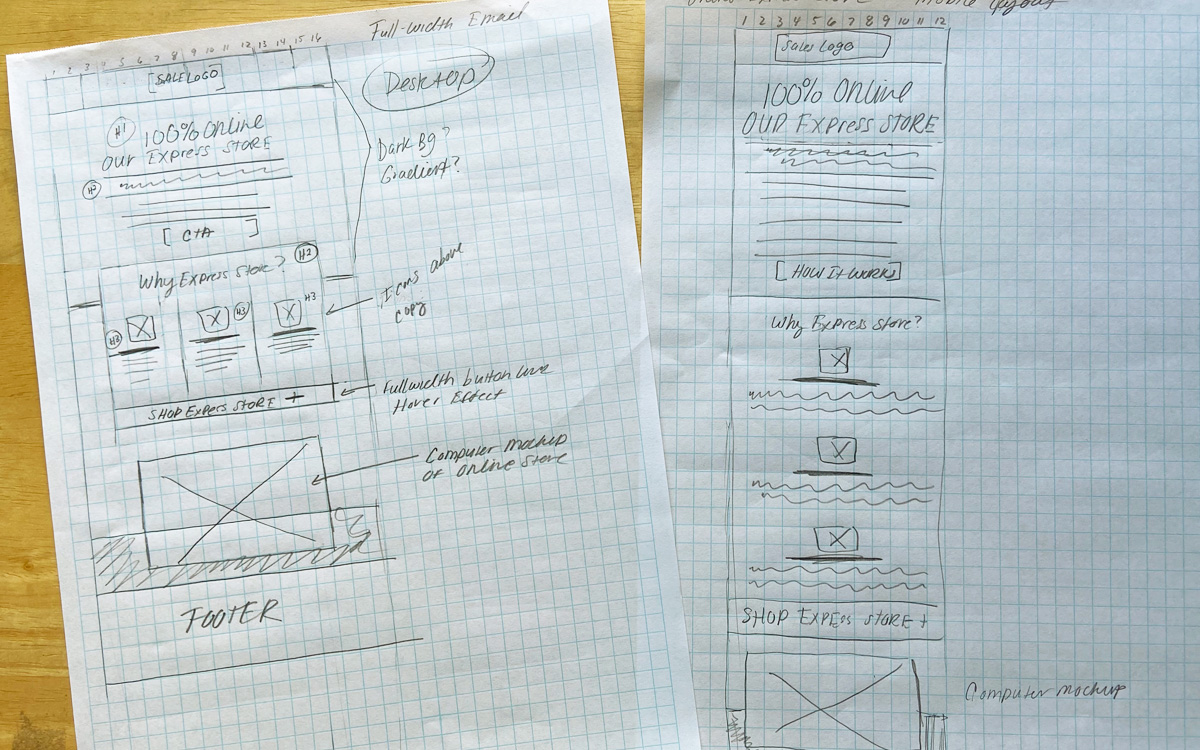 Full-width Email
1 2 3 4 5 6 7 8 9 10 11 12 13 14 15 16
[SALE LOGO]
Desktop
H1
100% Online
OUR EXPRESS STORE
H2
Dark Bg?
Gradient?
[CTA]
Why Express Store?
H2
Icons above
copy
H3
H3
H3
SHOP Express STORE +
Fullwidth button
Hover Effect
Computer mockup
of Online Store
FOOTER
Mobile layout
1 2 3 4 5 6 7 8 9 10 11 12
Sales Logo
100% Online
OUR Express STORE
[HOW It WORKS]
Why Express Store?
SHOP EXPRESS STORE +
Computer mockup